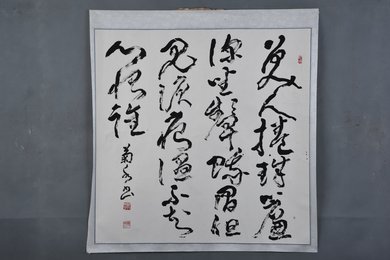 美人捲珠簾
深坐顰蛾眉但
見淚痕濕不知
心恨誰
菊 书